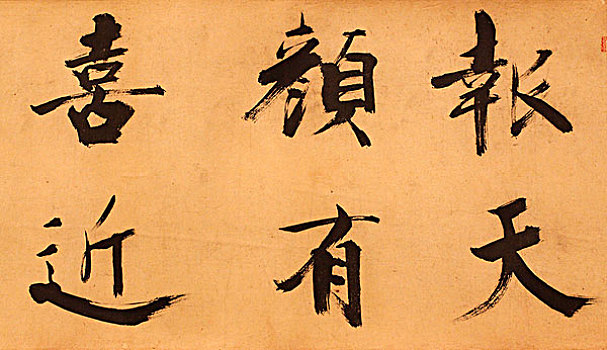 報天
顔有
喜近